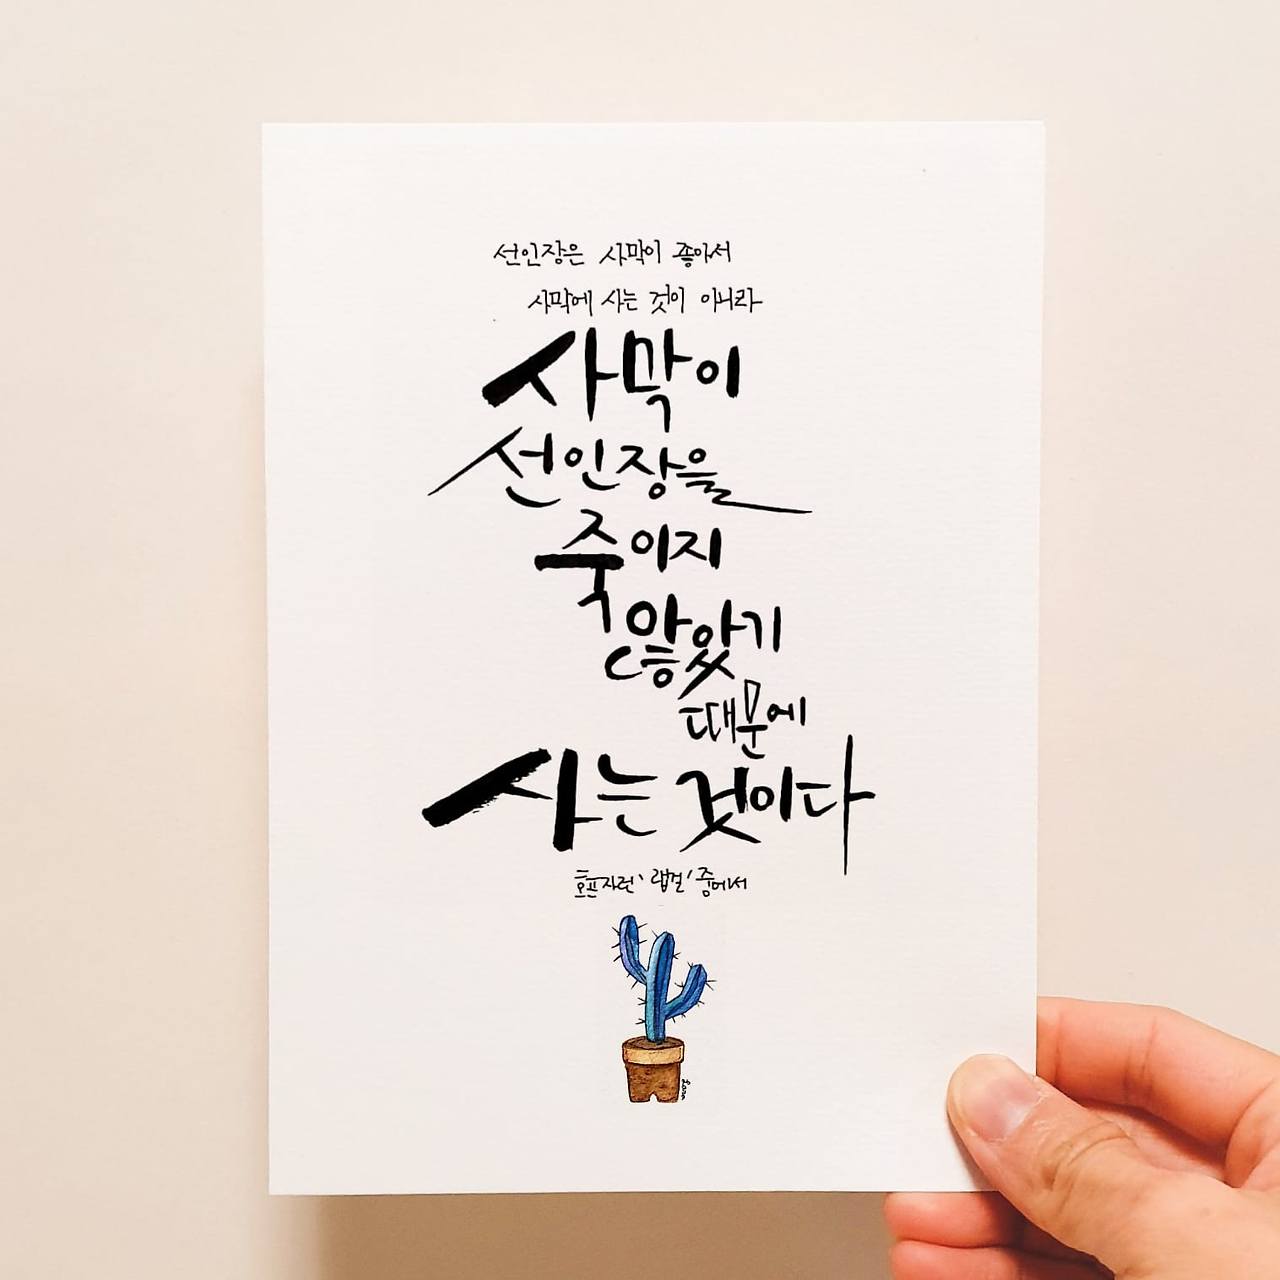 선인장은 사막이 좋아서
사막에 사는 것이 아니라
사막이
선인장을
죽이지
않았기
때문에
사는 것이다
호프자런 '랩걸' 중에서